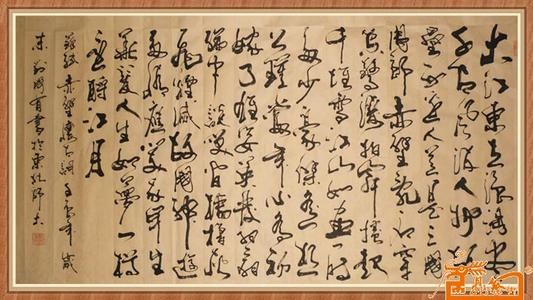 大江東去浪淘盡
千古風流人物故
壘西邊人道是三國
周郎赤壁亂石穿
空驚濤拍岸捲起
千堆雪江山如畫一時
多少豪傑遙想
公瑾當年小喬初
嫁了雄姿英發羽扇
綸巾談笑間檣櫓灰
飛煙滅故國神遊
多情應笑我早生
華髮人生如夢一樽
還酹江月
蘇軾赤壁懷古詞
書於